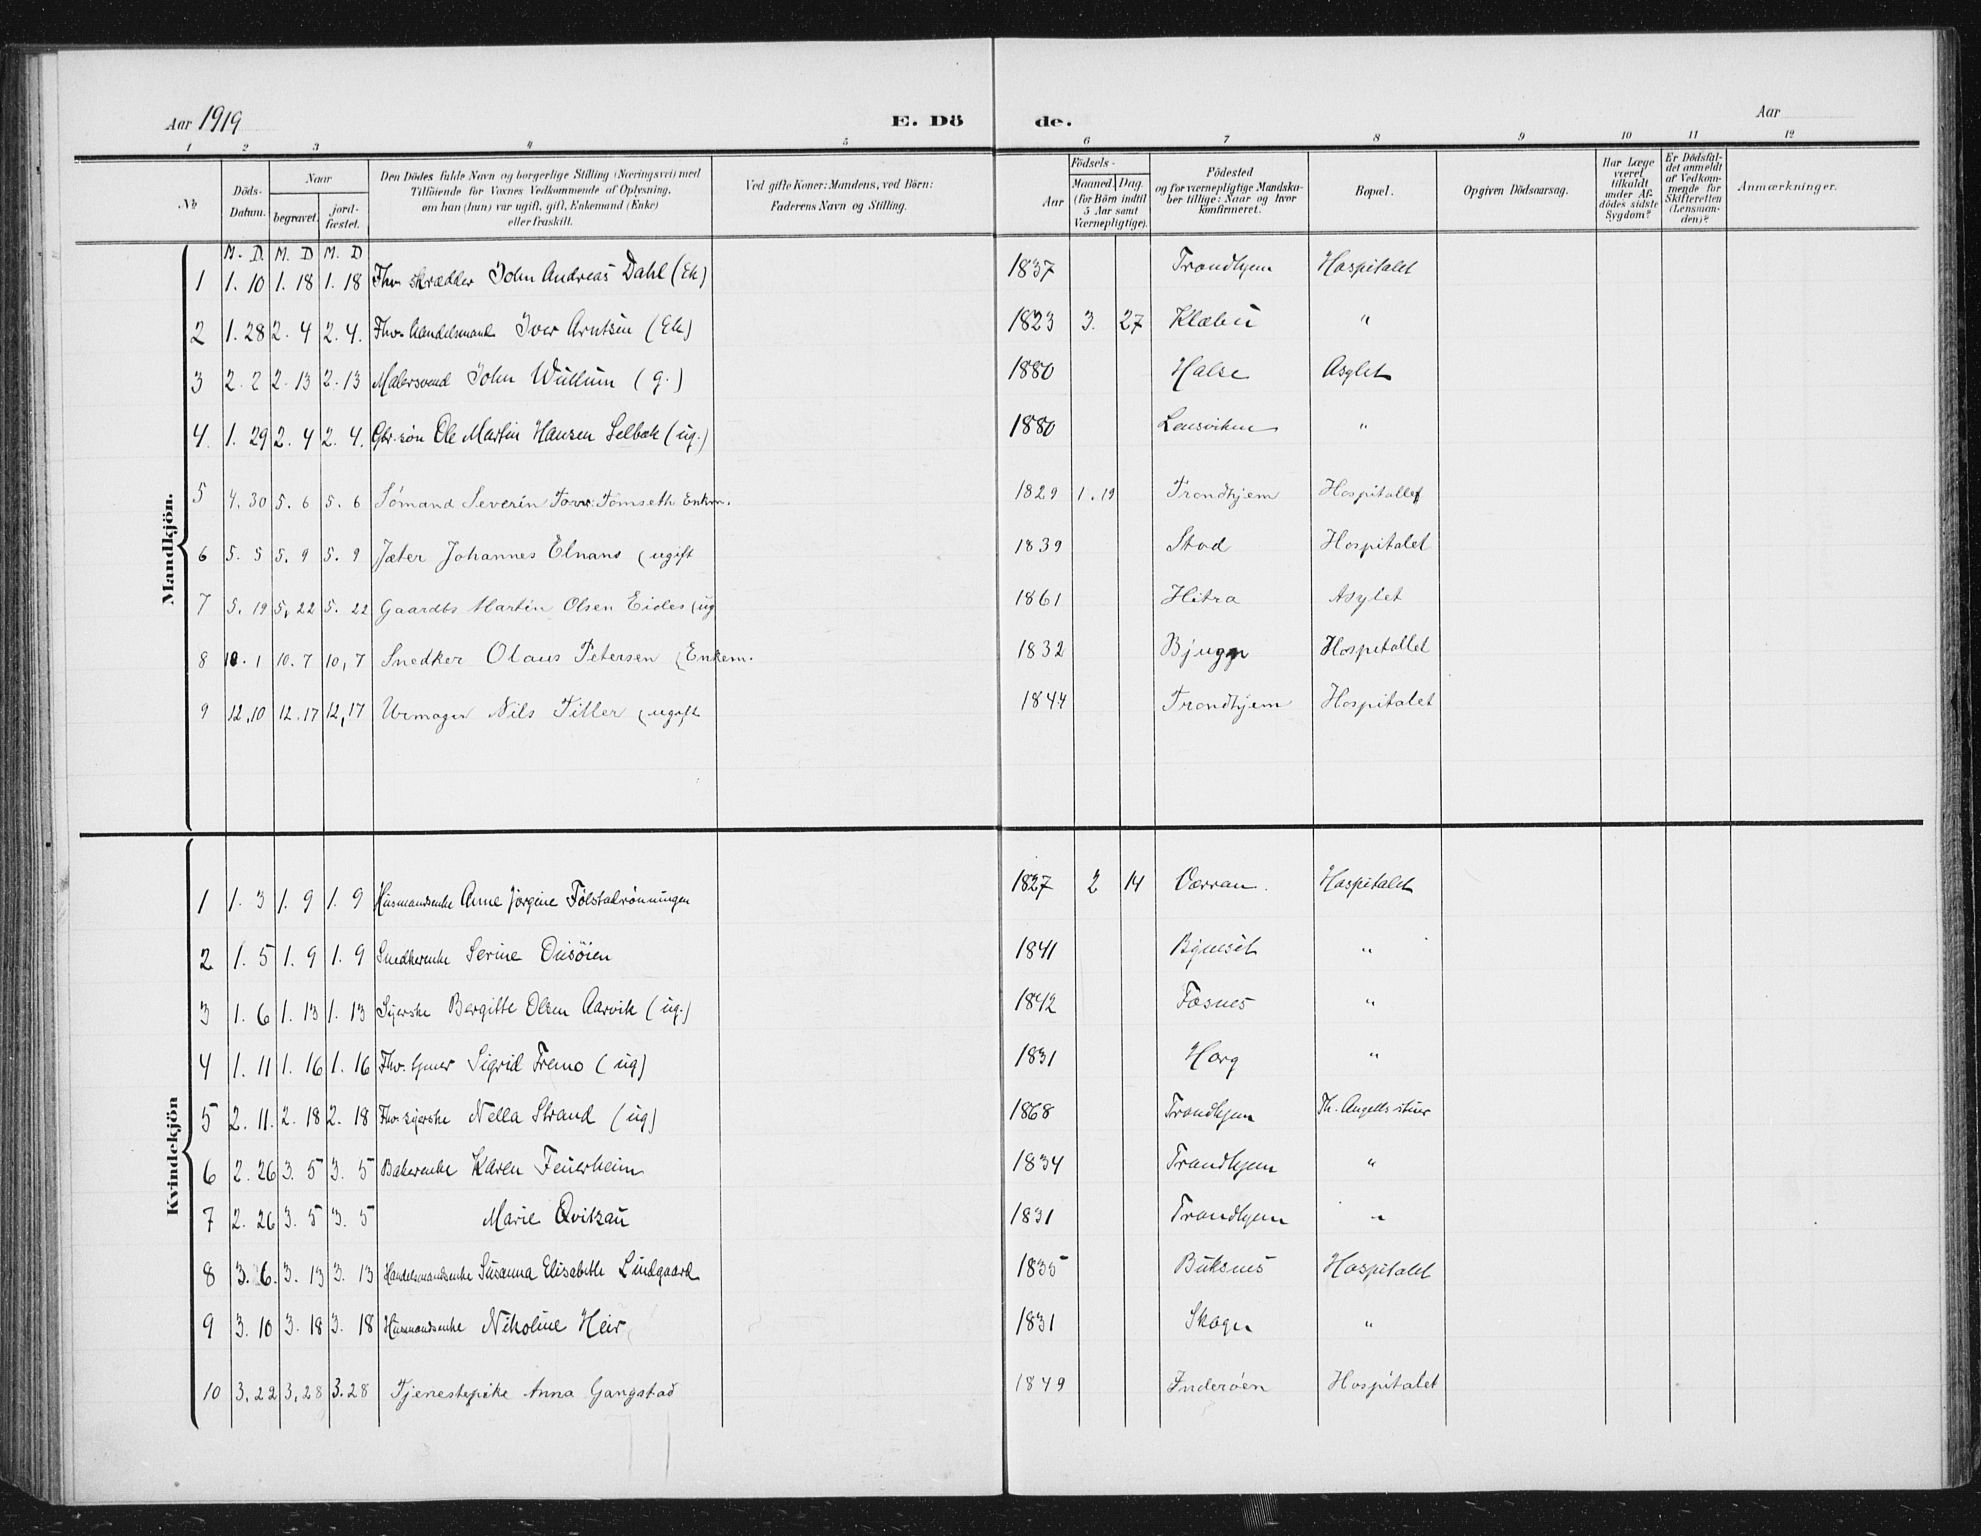 Aar 1919
E. Dö de.
Aar
1 2 3 4 5 6 7 8 9 10 11 12
No
Döds-Datum.
Naar begravet. jordfæstet.
Den Dödes fulde Navn og borgerlige Stilling (Næringsvei) med Tilföiende för Voxnes Vedkommende af Oplysning, om han (hun) var ugift, gift, Enkemand (Enke) eller fraskilt.
Ved gifte Koner: Mandens, ved Börn: Faderens Navn og Stilling.
Födsels-
Aar Maaned. Dag. (for Börn indtil 5 Aar samt Værnepligtige).
Födested og for værnepligtige Mandskaber tillige: Naar og hvor konfirmeret.
Bopæl.
Opgiven Dödsaarsag.
Har Læge været tilkaldt under Afdödes sidste Sygdom?
Er Dödsfaldet anmeldt af Vedkommende for Skifteretten (Lensmanden)?
Anmærkninger.
Mandkjön.
M. D. M. D M. D
1 1. 10 1. 18 1. 18 Fhv. skrædder John Andreas Dahl (Ek) 1837 Trondhjem Hospitalet
2 1. 28 2. 4 2. 4. Fhv. handelsmand Iver Arntsen (Ek) 1823 3. 27 Klæbu "
3 2. 2 2. 13 2. 13 Malersvend John Wullum (g.) 1880 Halse Asylet
4. 1. 29 2. 4 2. 4. Gbr.søn Ole Martin Hansen Selbæk (ug.) 1880 Lensviken "
5 4. 30 5. 6 5. 6 Sömand Severin Tomseth Enkm. 1829 1. 19 Trondhjem Hospitallet
6 5. 5 5. 9 5. 9 Jæter Johannes Elnans (ugift 1839 Stod Hospitalet
7 5. 19 5, 22 5. 22 Gaardbs Martin Olsen Eides (ug 1861 Hitra Asylet
8 10. 1 10. 7 10, 7 Snedker Olaus Petersen (Enkem. 1832 Bjugn Hospitallet
9 12. 10 12. 17 12, 17 Urmager Nils Tiller (ugift 1844 Trondhjem Hospitalet
Kvindekjön
1 1. 3 1. 9 1. 9 Husmandsenke Anne Jørgine Følstadrønningen 1827 2 14 Værran. Hospitalet
2 1. 5 1. 9 1. 9 Snedkerenke Serine Øusöien 1841 Bynesét "
3 1. 6 1. 13 1. 13 Syerske Bergitte Olsen Aarvik (ug.) 1842 Fosnes "
4 1. 11 1. 16 1. 16 Fhv. Sigrid Fremo (ug) 1831 Horg "
5 2. 11. 2. 18 2. 18 Fhv. syerske Nella Strand (ug) 1868 Trondhjem Th. Angells stuer
6 2. 26 3. 5 3. 5 Bakerenke Karen Feuerheim 1834 Trondhjem "
7 2. 26 3. 5 3. 5 Marie Qvitzau 1831 Trondhjem "
8 3. 6. 3. 13 3. 13 Handelsmandsenke Susanna Elisabeth Lindgaard 1835 Buksnes Hospitalet
9 3. 10 3. 18 3. 18 Husmandsenke Nikoline Heir 1831 Skogn "
10 3. 22 3. 28 3. 28 Tjenestepike Anna Gangstad 1849 Inderøen Hospitalet